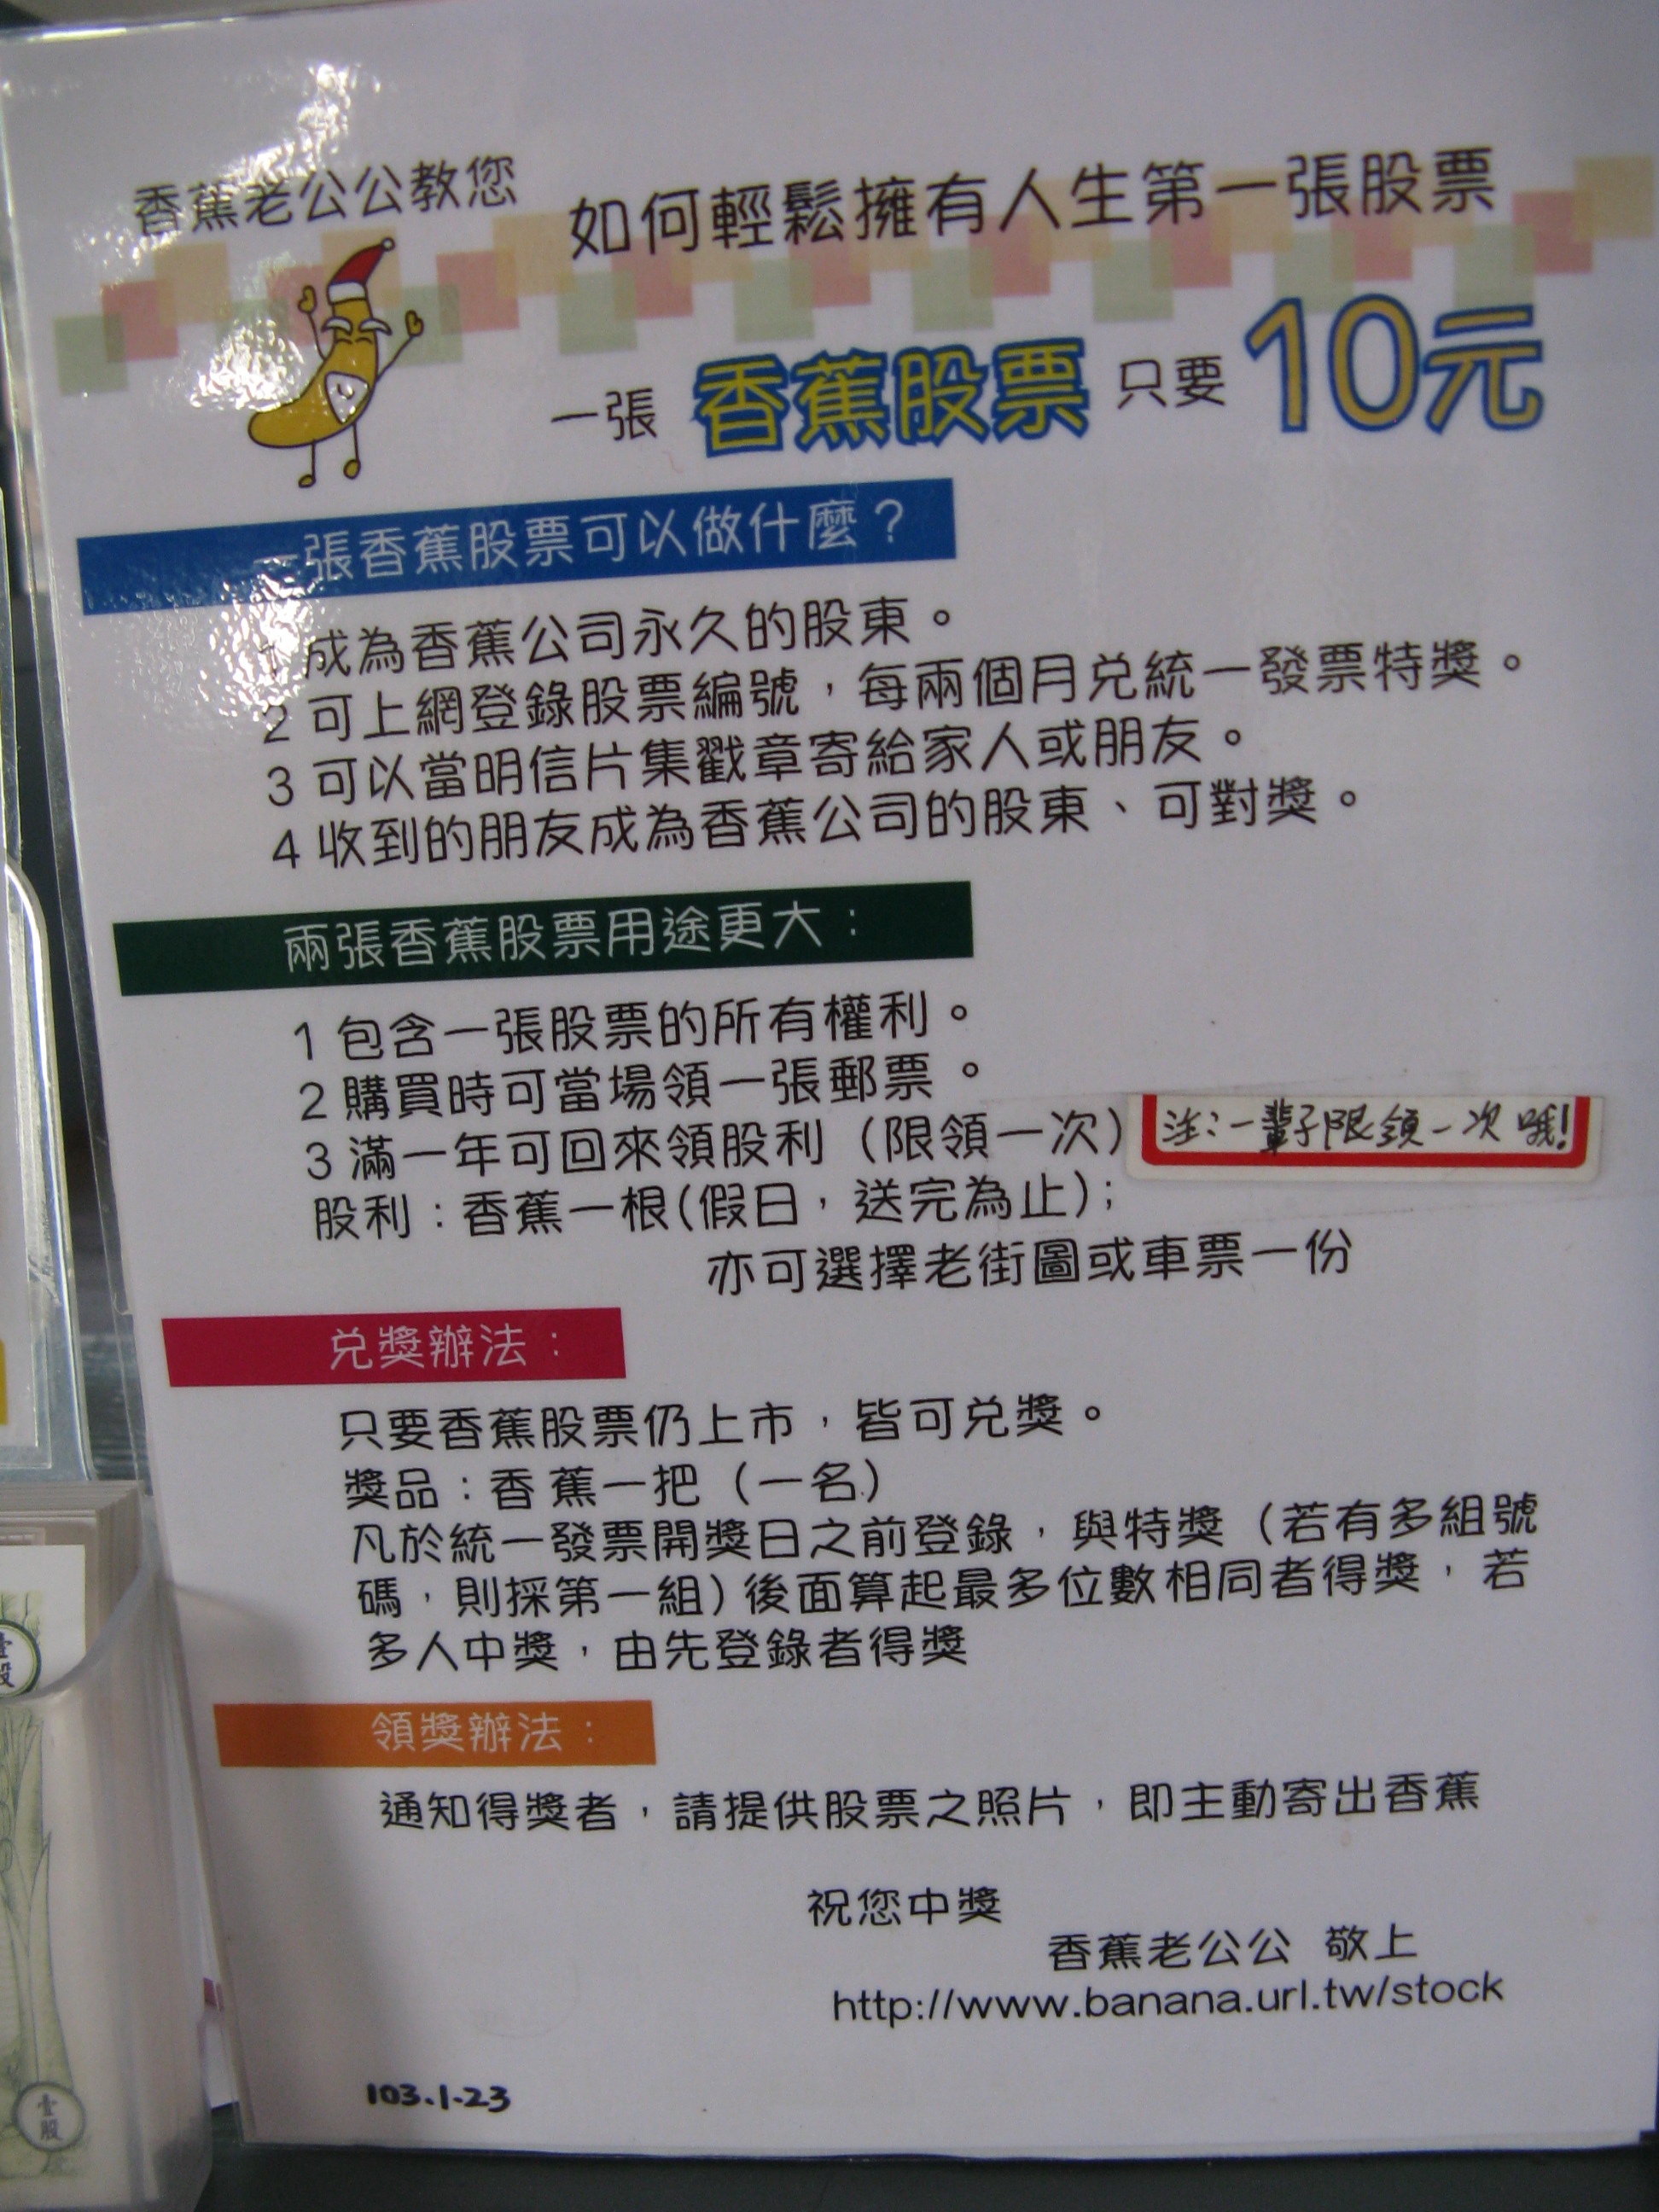 香蕉老公公教您
如何輕鬆擁有人生第一張股票
一張 香蕉股票 只要 10元
一張香蕉股票可以做什麼？
1 成為香蕉公司永久的股東。
2 可上網登錄股票編號，每兩個月兌統一發票特獎。
3 可以當明信片集戳章寄給家人或朋友。
4 收到的朋友成為香蕉公司的股東、可對獎。
兩張香蕉股票用途更大：
1 包含一張股票的所有權利。
2 購買時可當場領一張郵票。
3 滿一年可回來領股利（限領一次）
注：一輩子限領一次哦!
股利：香蕉一根(假日，送完為止)；
亦可選擇老街圖或車票一份
兌獎辦法：
只要香蕉股票仍上市，皆可兌獎。
獎品：香蕉一把（一名）
凡於統一發票開獎日之前登錄，與特獎（若有多組號
碼，則採第一組）後面算起最多位數相同者得獎，若
多人中獎，由先登錄者得獎
領獎辦法：
通知得獎者，請提供股票之照片，即主動寄出香蕉
祝您中獎
香蕉老公公 敬上
http://www.banana.url.tw/stock
103.1.23
壹股
壹股